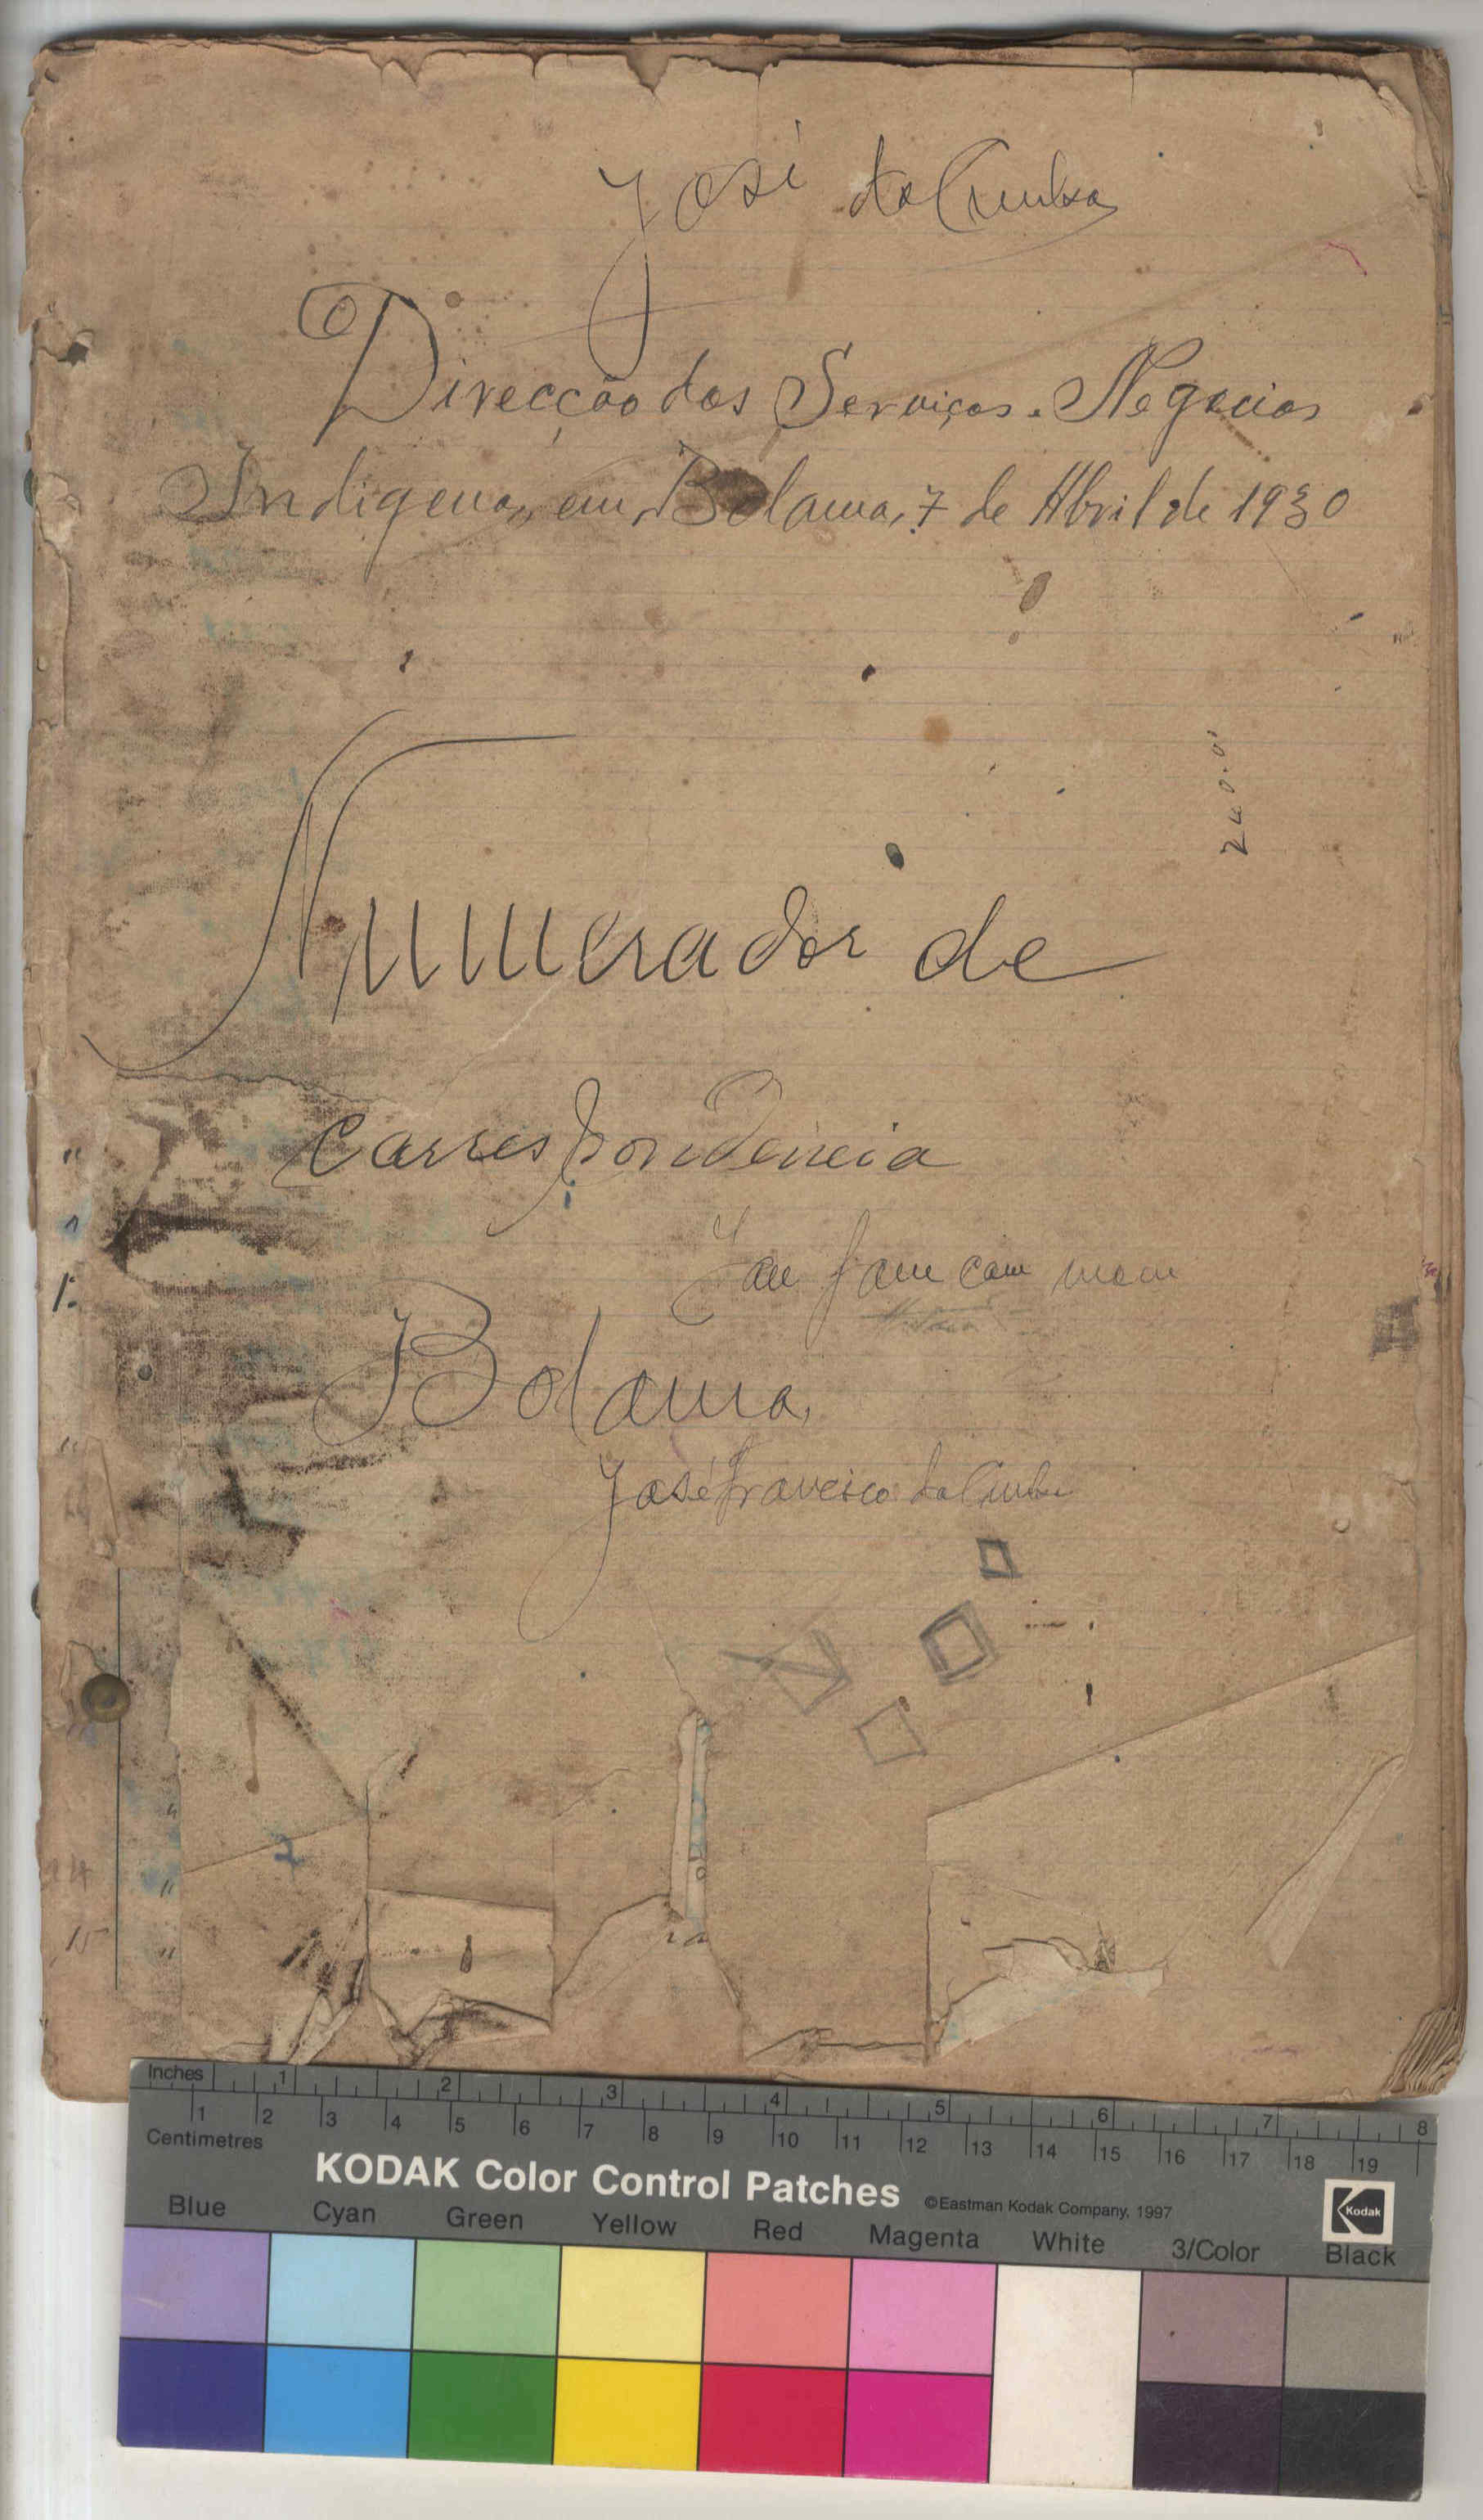 José da Cunha
Direcção dos Serviços. Negocios
Indigena, em, Bolama, 7 de Abril de 1930
Numerador de
Correspondencia
com
Bolama,
José Francisco da Cunha
14
15
Inches 1 2 3 4 5 6 7 8
1 2 3 4 5 6 7 8 9 10 11 12 13 14 15 16 17 18 19
Centimetres
KODAK Color Control Patches ©Eastman Kodak Company, 1997 Kodak
Blue Cyan Green Yellow Red Magenta White 3/Color Black